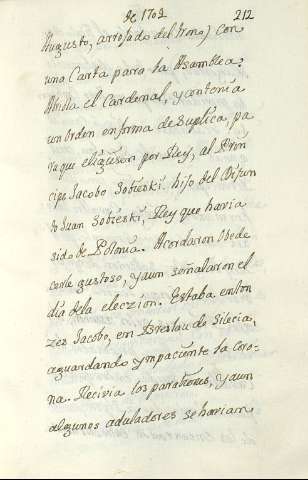 de 1702 212
Augusto, arrojado del trono) con
una Carta parra la Asamblea.
Abrióla el Cardenal, y contenia
un orden en forma de Suplica, pa
ra que eligiesen por Rey, al Prin
cipe Jacobo Sobieski. hijo del Difun
to Juan Sobieski, Rey que havia
sido de Polonia. Acordaron obede
cerle gustoso, y aun señalaron el
dia dela eleczion. Estaba enton
zes Jacobo, en Breslau de Silecia,
aguardando ympaciente la Coro-
na. Recivia los parabienes, y aun
algunos aduladores se havian